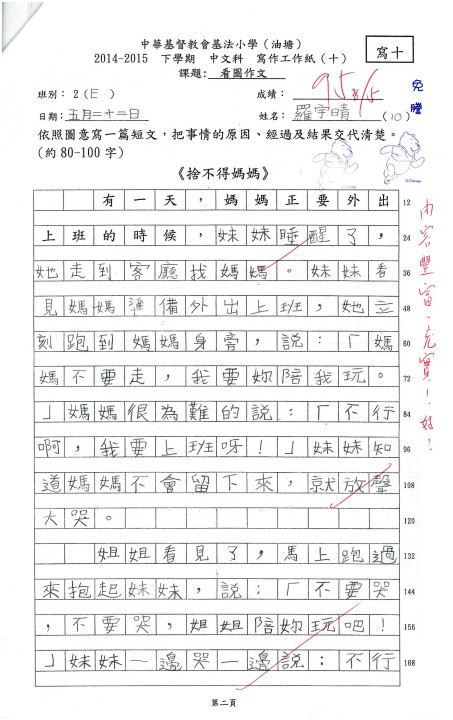 中華基督教會基法小學（油塘）
2014-2015 下學期 中文科 寫作工作紙（十）
寫十
課題：看圖作文
班別：2（E） 成績：95 8/15
免謄
日期：五月二十二日 姓名：羅宇晴（10）
依照圖意寫一篇短文，把事情的原因、經過及結果交代清楚。
（約80-100字）
《捨不得媽媽》
有一天，媽媽正要外出 12
上班的時候，妹妹睡醒了， 24
她走到客廳找媽媽。妹妹看 36
見媽媽準備外出上班，她立 48
刻跑到媽媽身旁，說：「媽 60
媽不要走，我要妳陪我玩。 72
」媽媽很為難的說：「不行 84
啊，我要上班呀！」妹妹知 96
道媽媽不會留下來，就放聲 108
大哭。 120
姐姐看見了，馬上跑過 132
來抱起妹妹，說：「不要哭 144
，不要哭，姐姐陪妳玩吧！ 156
」妹妹一邊哭一邊說：不行 168
內容豐富、充實！好！
第二頁